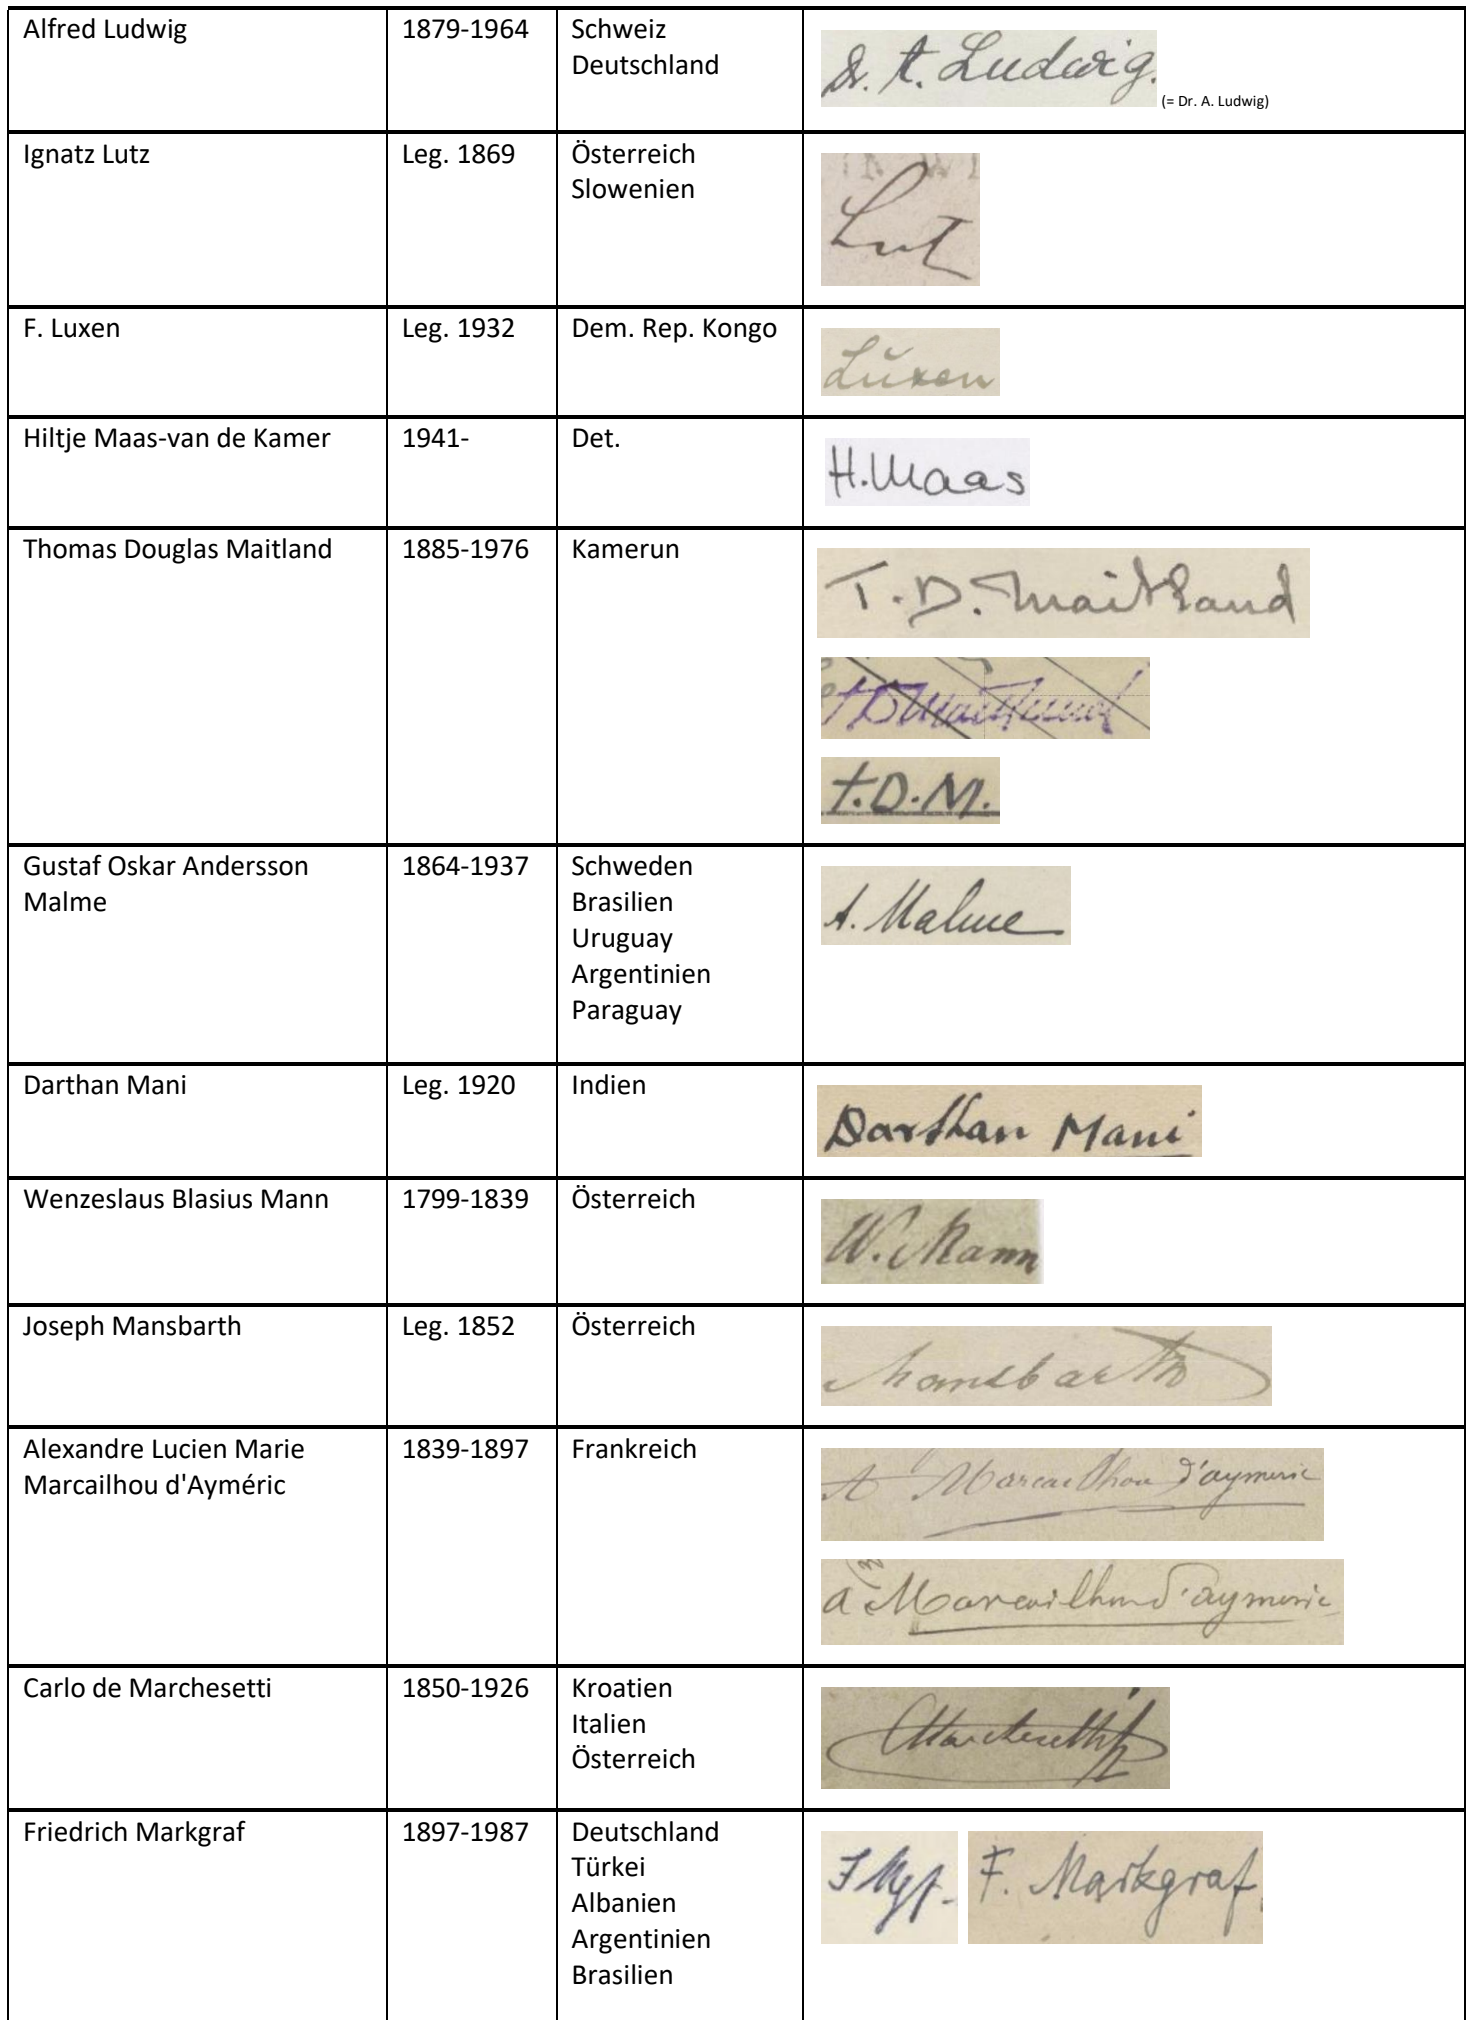 Alfred Ludwig 1879-1964 Schweiz
Deutschland
Dr. A. Ludwig. (= Dr. A. Ludwig)
Ignatz Lutz Leg. 1869 Österreich
Slowenien
Lutz
F. Luxen Leg. 1932 Dem. Rep. Kongo
Luxen
Hiltje Maas-van de Kamer 1941- Det.
H. Maas
Thomas Douglas Maitland 1885-1976 Kamerun
T. D. Maitland
T D Maitland
T.D.M.
Gustaf Oskar Andersson 1864-1937 Schweden
Malme Brasilien
Uruguay
Argentinien
Paraguay
A. Malme
Darthan Mani Leg. 1920 Indien
Darthan Mani
Wenzeslaus Blasius Mann 1799-1839 Österreich
W. Mann
Joseph Mansbarth Leg. 1852 Österreich
Mansbarth
Alexandre Lucien Marie 1839-1897 Frankreich
Marcailhou d'Ayméric
A Marcailhou d'aymeric
a Marcailhou d'aymeric
Carlo de Marchesetti 1850-1926 Kroatien
Italien
Österreich
Marchesetti
Friedrich Markgraf 1897-1987 Deutschland
Türkei
Albanien
Argentinien
Brasilien
F Mgf. F. Markgraf